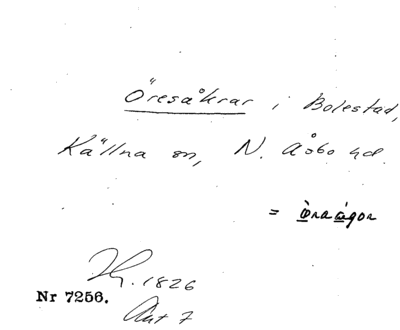 Öresåkrar i Bolestad,
Källna sn, N. Åsbo hd.
= öraågor
Hg. 1826
Nr 7256.
Akt 7